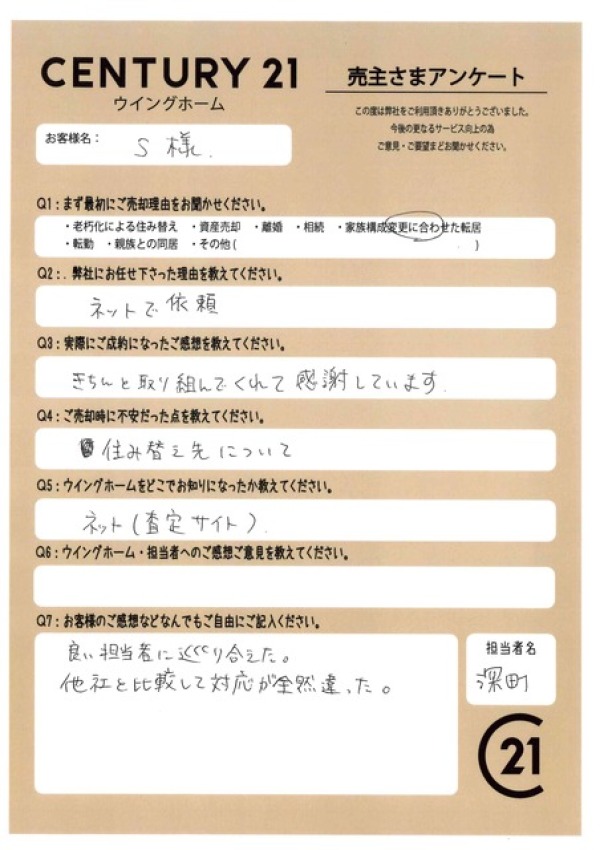 CENTURY 21
ウイングホーム
売主さまアンケート
この度は弊社をご利用頂きありがとうございました。
今後の更なるサービス向上の為
ご意見・ご要望までお聞かせください。
お客様名： S 様.
Q1：まず最初にご売却理由をお聞かせください。
・老朽化による住み替え ・資産売却 ・離婚 ・相続 ・家族構成変更に合わせた転居
・転勤 ・親族との同居 ・その他（ ）
Q2：. 弊社にお任せ下さった理由を教えてください。
ネットで依頼
Q3：実際にご成約になったご感想を教えてください。
きちんと取り組んでくれて感謝しています.
Q4：ご売却時に不安だった点を教えてください。
住み替え先について
Q5：ウイングホームをどこでお知りになったか教えてください。
ネット(査定サイト).
Q6：ウイングホーム・担当者へのご感想ご意見を教えてください。
Q7：お客様のご感想などなんでもご自由にご記入ください。
良い担当者に巡ぐり合えた。
他社と比較して対応が全然違った。
担当者名
深町
C21